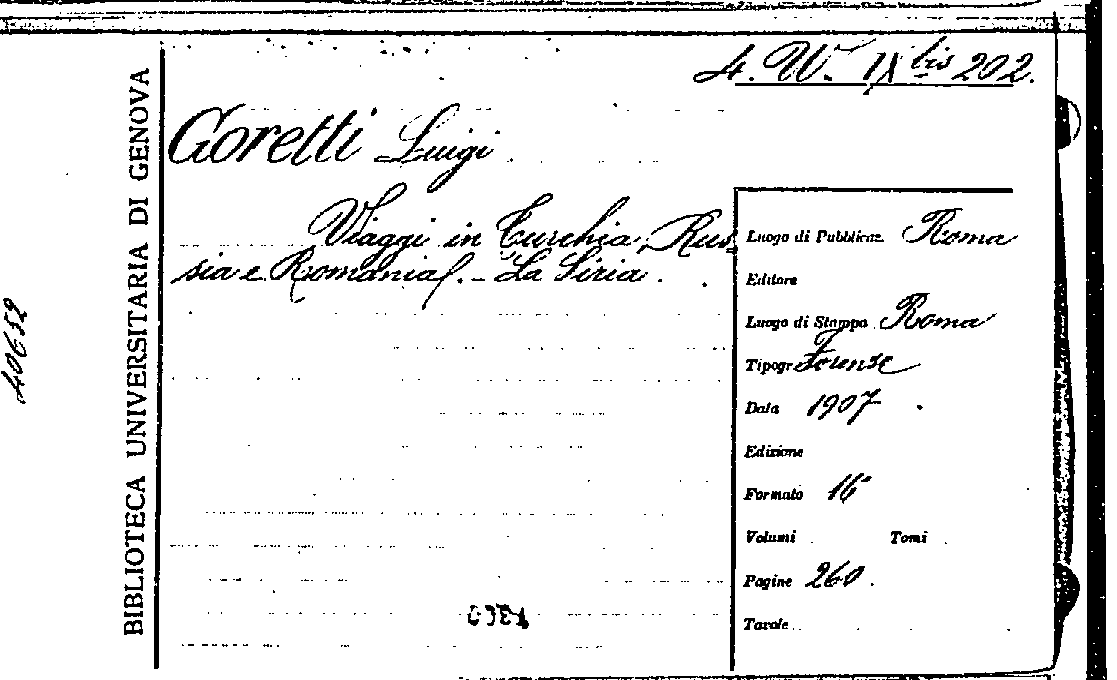 4. W. IX bis 202.
Goretti Luigi.
Viaggi in Turchia, Rus-
sia e Romania. - La Siria.
Luogo di Pubblicaz. Roma
Editore
Luogo di Stampa Roma
Tipogr. Forense
Data 1907
Edizione
Formato 16°
Volumi Tomi
Pagine 260.
Tavole
BIBLIOTECA UNIVERSITARIA DI GENOVA
40652